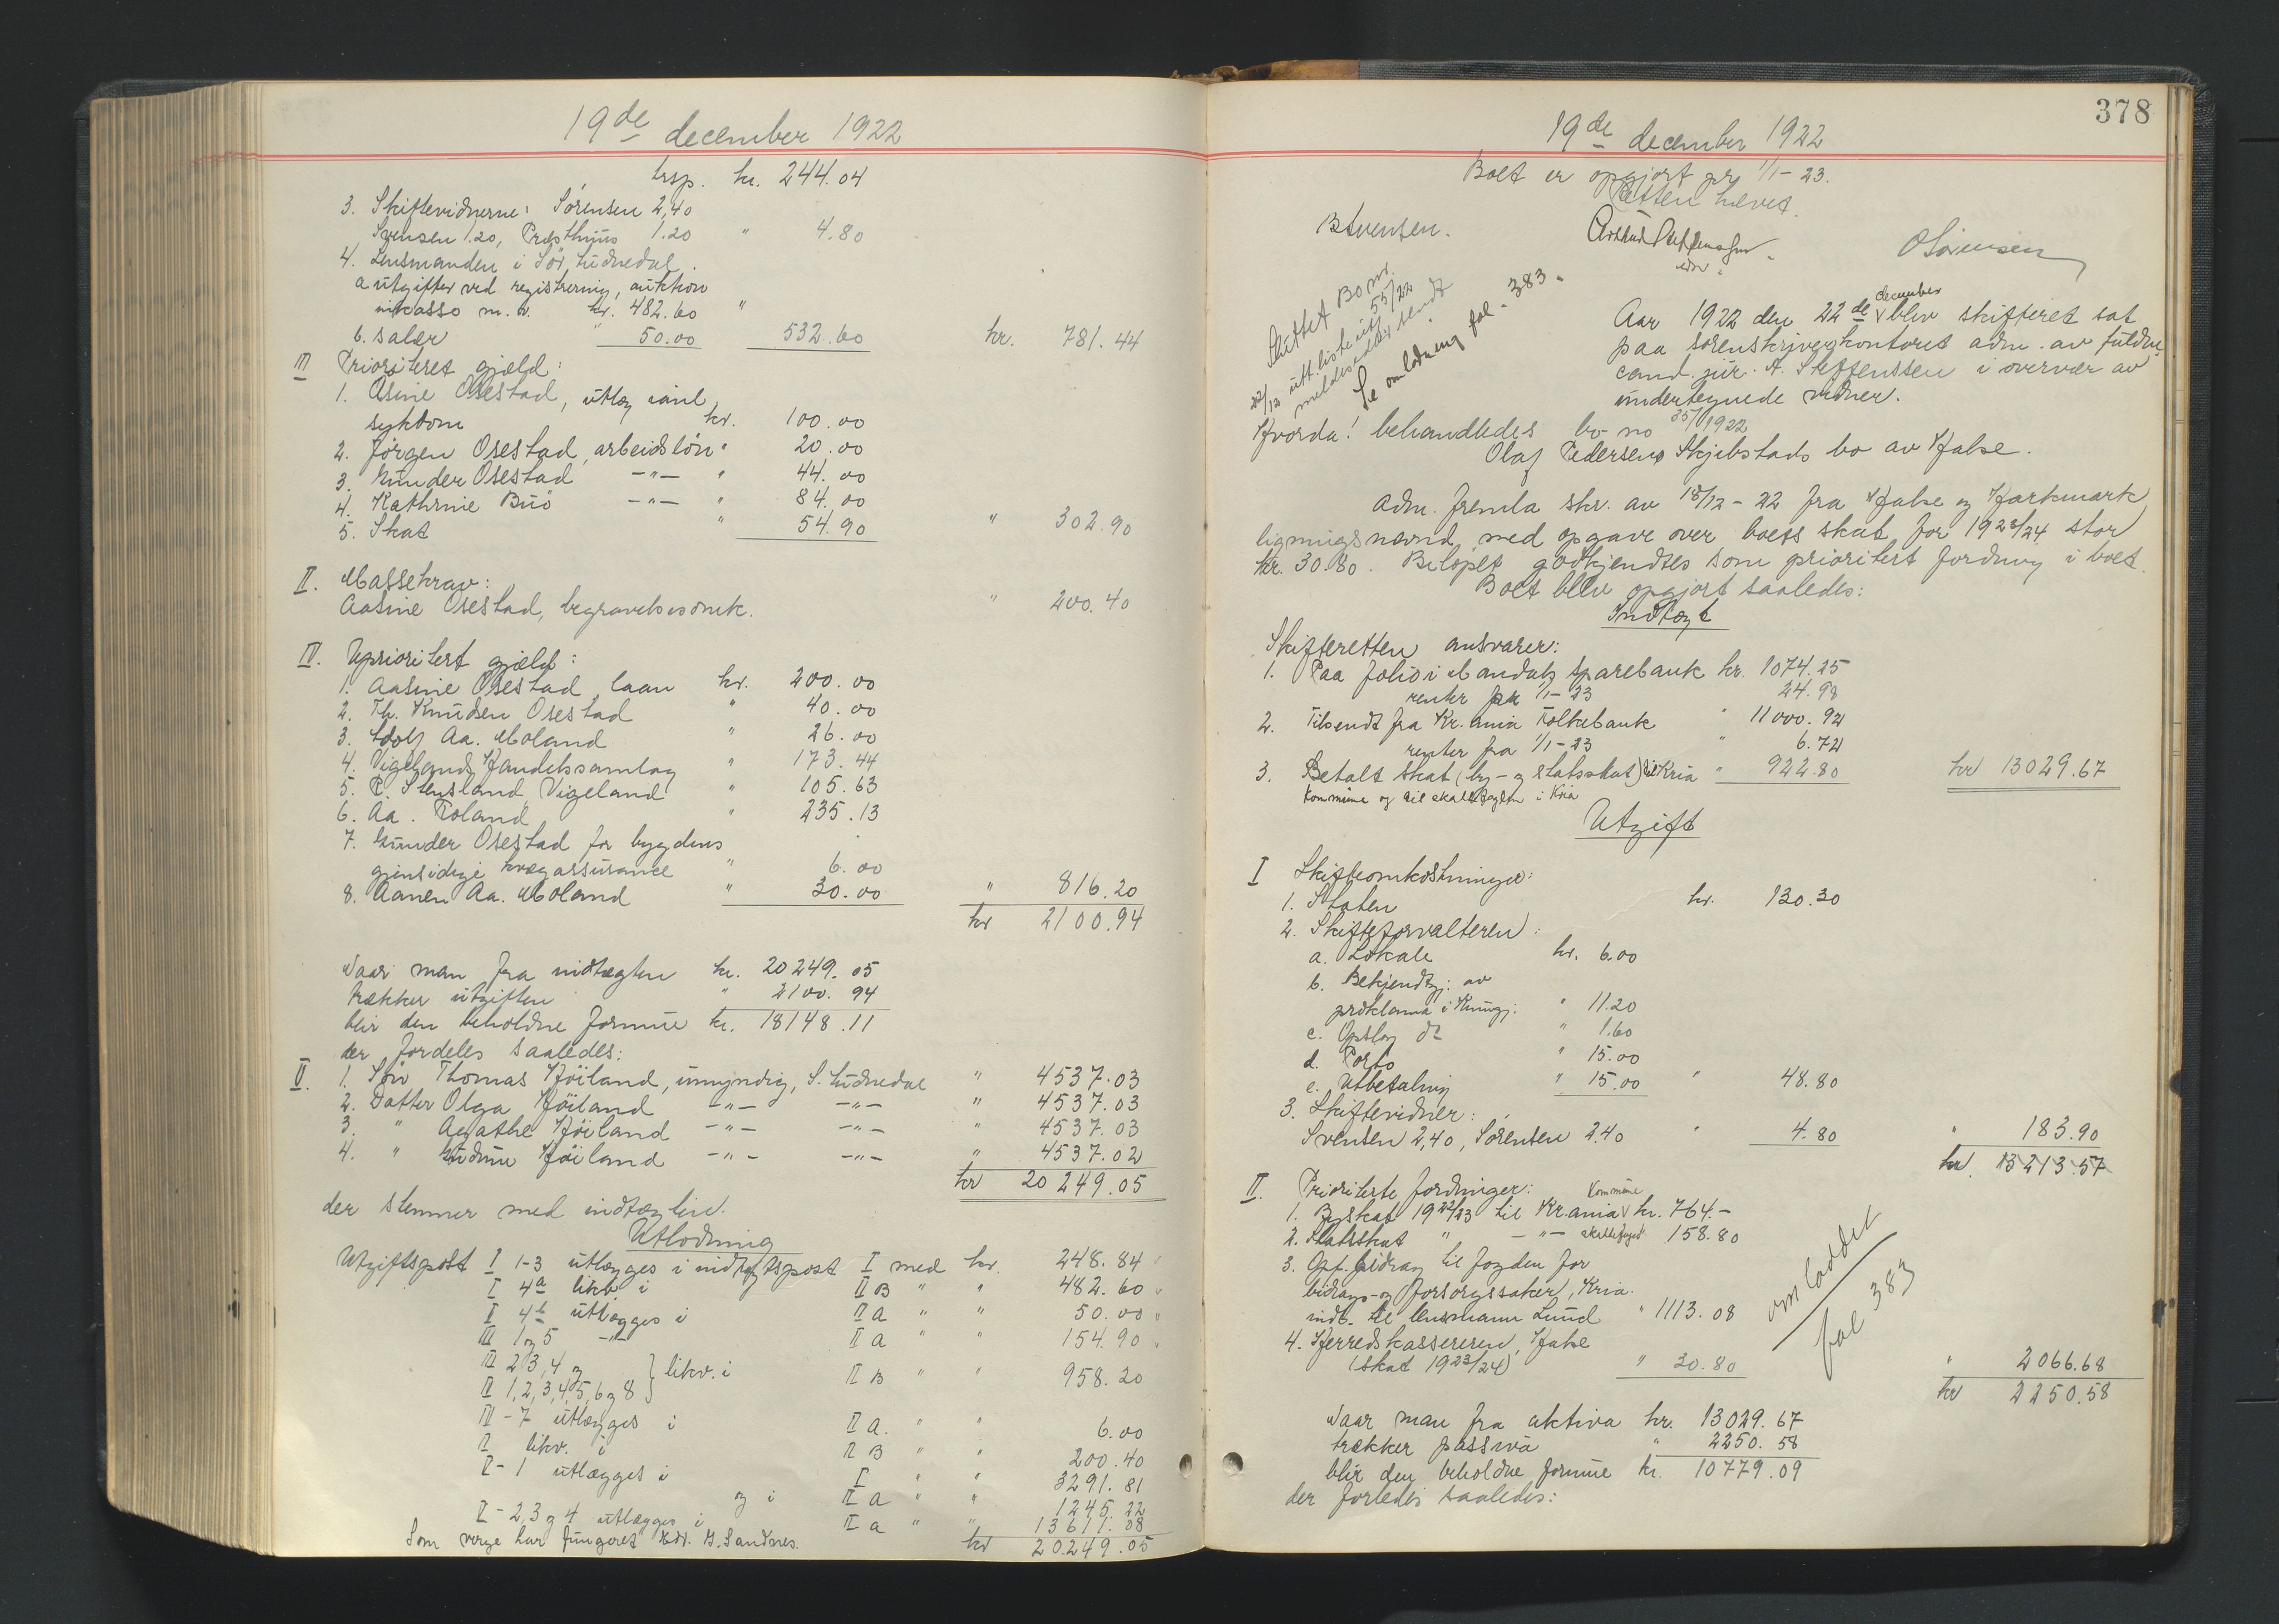 19de december 1922
trsp. kr. 244.04
3. Skiftevidnerne: Sørensen 2,40
Svensen 1.20, Præsthuus 1.20 " 4.80
4. Lensmanden i Sør Audnedal.
a utgifter ved registrering, auktion
inkasso m.v. kr. 482.60 "
b. salær " 50.00 532.60 kr. 781.44
III Prioritert gjæld:
1. Asine Osestad, utlæg anl.
sykdom kr. 100.00
2. Jørgen Osestad, arbeidsløn " 20.00
3. Gunder Osestad -"- " 44.00
4. Kathrine Buø -"- " 84.00
5. Skat " 54.90 " 302.90
II. Massekrav:
Aasine Osestad, begravelsesomk. " 200.40
IV. Uprioritert gjæld:
1. Aasine Osestad, laan kr. 200.00
2. Th. Knudsen Osestad " 40.00
3. Edolf Aa. Moland " 26.00
4. Vigelands Handelssamlag " 173.44
5. P. Stensland, Vigeland " 105.63
6. Aa. Foland " 235.13
7. Gunder Osestad for bygdens
gjensidige kvægassurance " 6.00
8. Aanen Aa. Moland " 30.00 " 816.20
kr 2100.94
Naar man fra indtægten kr. 20249.05
trækker utgiften " 2100.94
blir den beholdne formue kr. 18148.11
der fordeles saaledes:
V. 1. Søn Thomas Høiland, umyndig, S. Audnedal " 4537.03
2. Datter Olga Høiland -"- -"- " 4537.03
3. " Agathe Høiland -"- -"- " 4537.03
4. " Gudrun Høiland -"- -"- " 4537.02
kr 20249.05
der stemmer med indtægten.
Utlodning
Utgiftspost I 1-3 utlægges i indtægtspost I med kr. 248.84
I 4a likv. i II B " " 482.60
I 4b utlægges i II a " " 50.00
III 1 og 5 -"- II a " " 154.90
III 2, 3, 4 og } likv. i
IV 1, 2, 3, 4, 5, 6 og 8 II B " " 958.20
IV - 7 utlægges i II a. " " 6.00
II likv. i II B " " 200.40
V - 1 utlægges i I " " 3291.81
og i II a " " 1245.22
V - 2, 3 og 4 utlægges i II a " " 13611.08
Som verge har fungeret Edv. H. Sandnes. kr 20249.05
378
19de december 1922
Boet er opgjort pr 1/1 - 23.
Retten hævet.
BSvensen. edv. O Sørensen
Sluttet Bo nr.
55/22
22/12 utt. liste
meldesedler sendt
Se omlodning fol. 383.
Aar 1922 den 22de december blev skifteret sat
paa sorenskriverkontoret adm. av fuldm.
cand. jur. A. Steffenssen i overvær av
undertegnede vidner.
Hvorda! behandledes bo no 35/1922
Olaf Pedersens Skjebstads bo av Halse.
Adm. fremla skr. av 18/12 - 22 fra Halse og Harkmark
ligningsnævnd med opgave over boets skat for 1923/24 stor
kr. 30.80. Beløpet godkjendtes som prioritert fordring i boet.
Boet blev opgjort saaledes:
Indtægt
Skifteretten ansvarer:
1. Paa folio i Mandals sparebank kr. 1074.25
renter pr 1/1 - 23 24.98
2. Tilsendt fra Kr.ania Folkebank " 11000.92
renter fra 1/1 - 23 " 6.72
3. Betalt skat (by- og statsskat) til Kria " 922.80 kr 13029.67
kommune og til skattefogden i Kria
Utgift
I Skifteomkostninger:
1. Staten kr. 130.30
2. Skifteforvalteren:
a. Lokale kr. 6.00
b. Bekjendtgj. av
proklama i Kungj: " 11.20
c. Opslag do " 1.60
d. Porto " 15.00
e. Utbetaling " 15.00 " 48.80
3. Skiftevidner:
Svensen 2,40, Sørensen 2.40 " 4.80 " 183.90
kr. 13213.57
II. Prioriterte fordringer:
1. Byskat 1922/23 til Kr.ania kommune kr. 764.-
2. Statsskat " -"- skattefoged 158.80
3. Opf. bidrag til fogden for
bidrags- og forsørgssaker, Kria.
indb. til lensmann Lund " 1113.08
4. Herredskassereren, Halse
(skat 1923/24) " 30.80 " 2066.68
kr 2250.58
omloddet
fol 383
Naar man fra aktiva kr. 13029.67
trækker passiva " 2250.58
blir den beholdne formue kr. 10779.09
der fordeles saaledes: